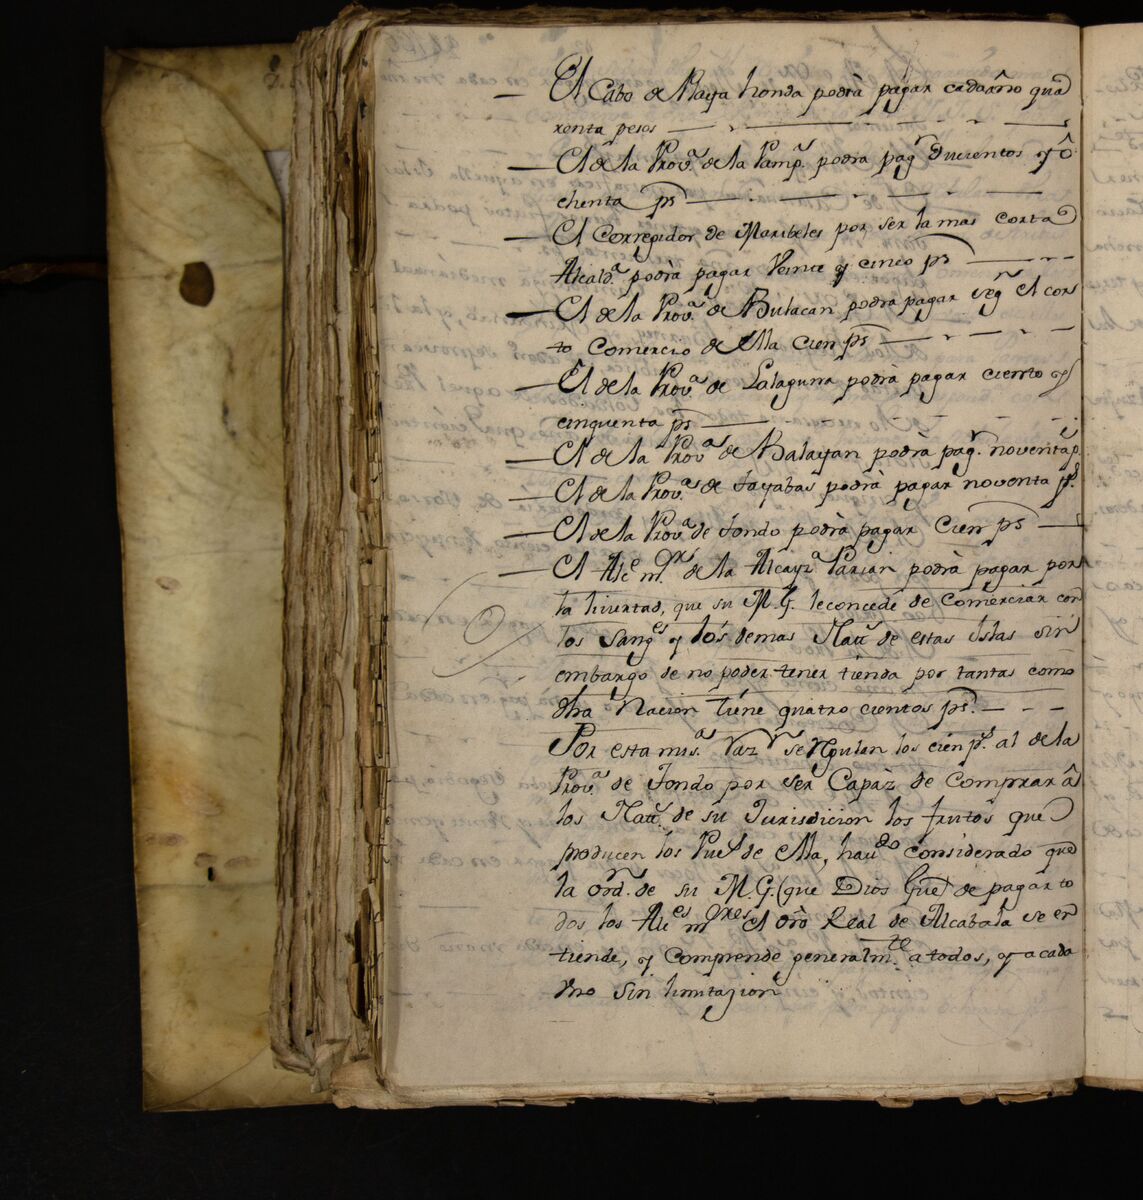 — El Cabo de Playa honda podrà pagar cada año qua
renta pesos
— El de la Prov.ª de la Pamp.ª podrà pag.r Ducientos y ô
chenta ps
— El Corregidor de Maribeles por ser la mas corta
Alcald.ª podrà pagar Veinte y cinco ps
— El de la Prov.ª de Bulacan podrà pagar seg.n el cor
to Comercio de ella Cien ps
— El de la Prov.ª de Lalaguna podrà pagar ciento y
cinquenta ps
— El de la Prov.ª de Balayan podrà pag.r noventa p.s
— El de la Prov.ª de tayabas podrà pagar noventa p.s
— El de la Prov.ª de tondo podrà pagar Cien ps
— El Alc.e m.r de la Alcayz.ª Parian podrà pagar por
la livertad, que su M. G. le concede de Comerciar con
los Sang.es y los demas Nat.s de estas Islas sin
embargo de no poder tener tienda por tantas como
dha Nacion tiene quatro cientos ps.
Por esta mis.ª Raz.n se Regulan los cien p.s al de la
Prov.ª de tondo por ser Capàz de Comprar â
los Nat.s de su Jurisdicion los frutos que
producen los Pue.s de ella, hav.do considerado que
la ord.n de su M. G. (que Dios Gue) de pagar to
dos los Alc.es m.res el dro Real de Alcabala se en
tiende, y Comprende generalm.te a todos, y a cada
uno sin limitazion